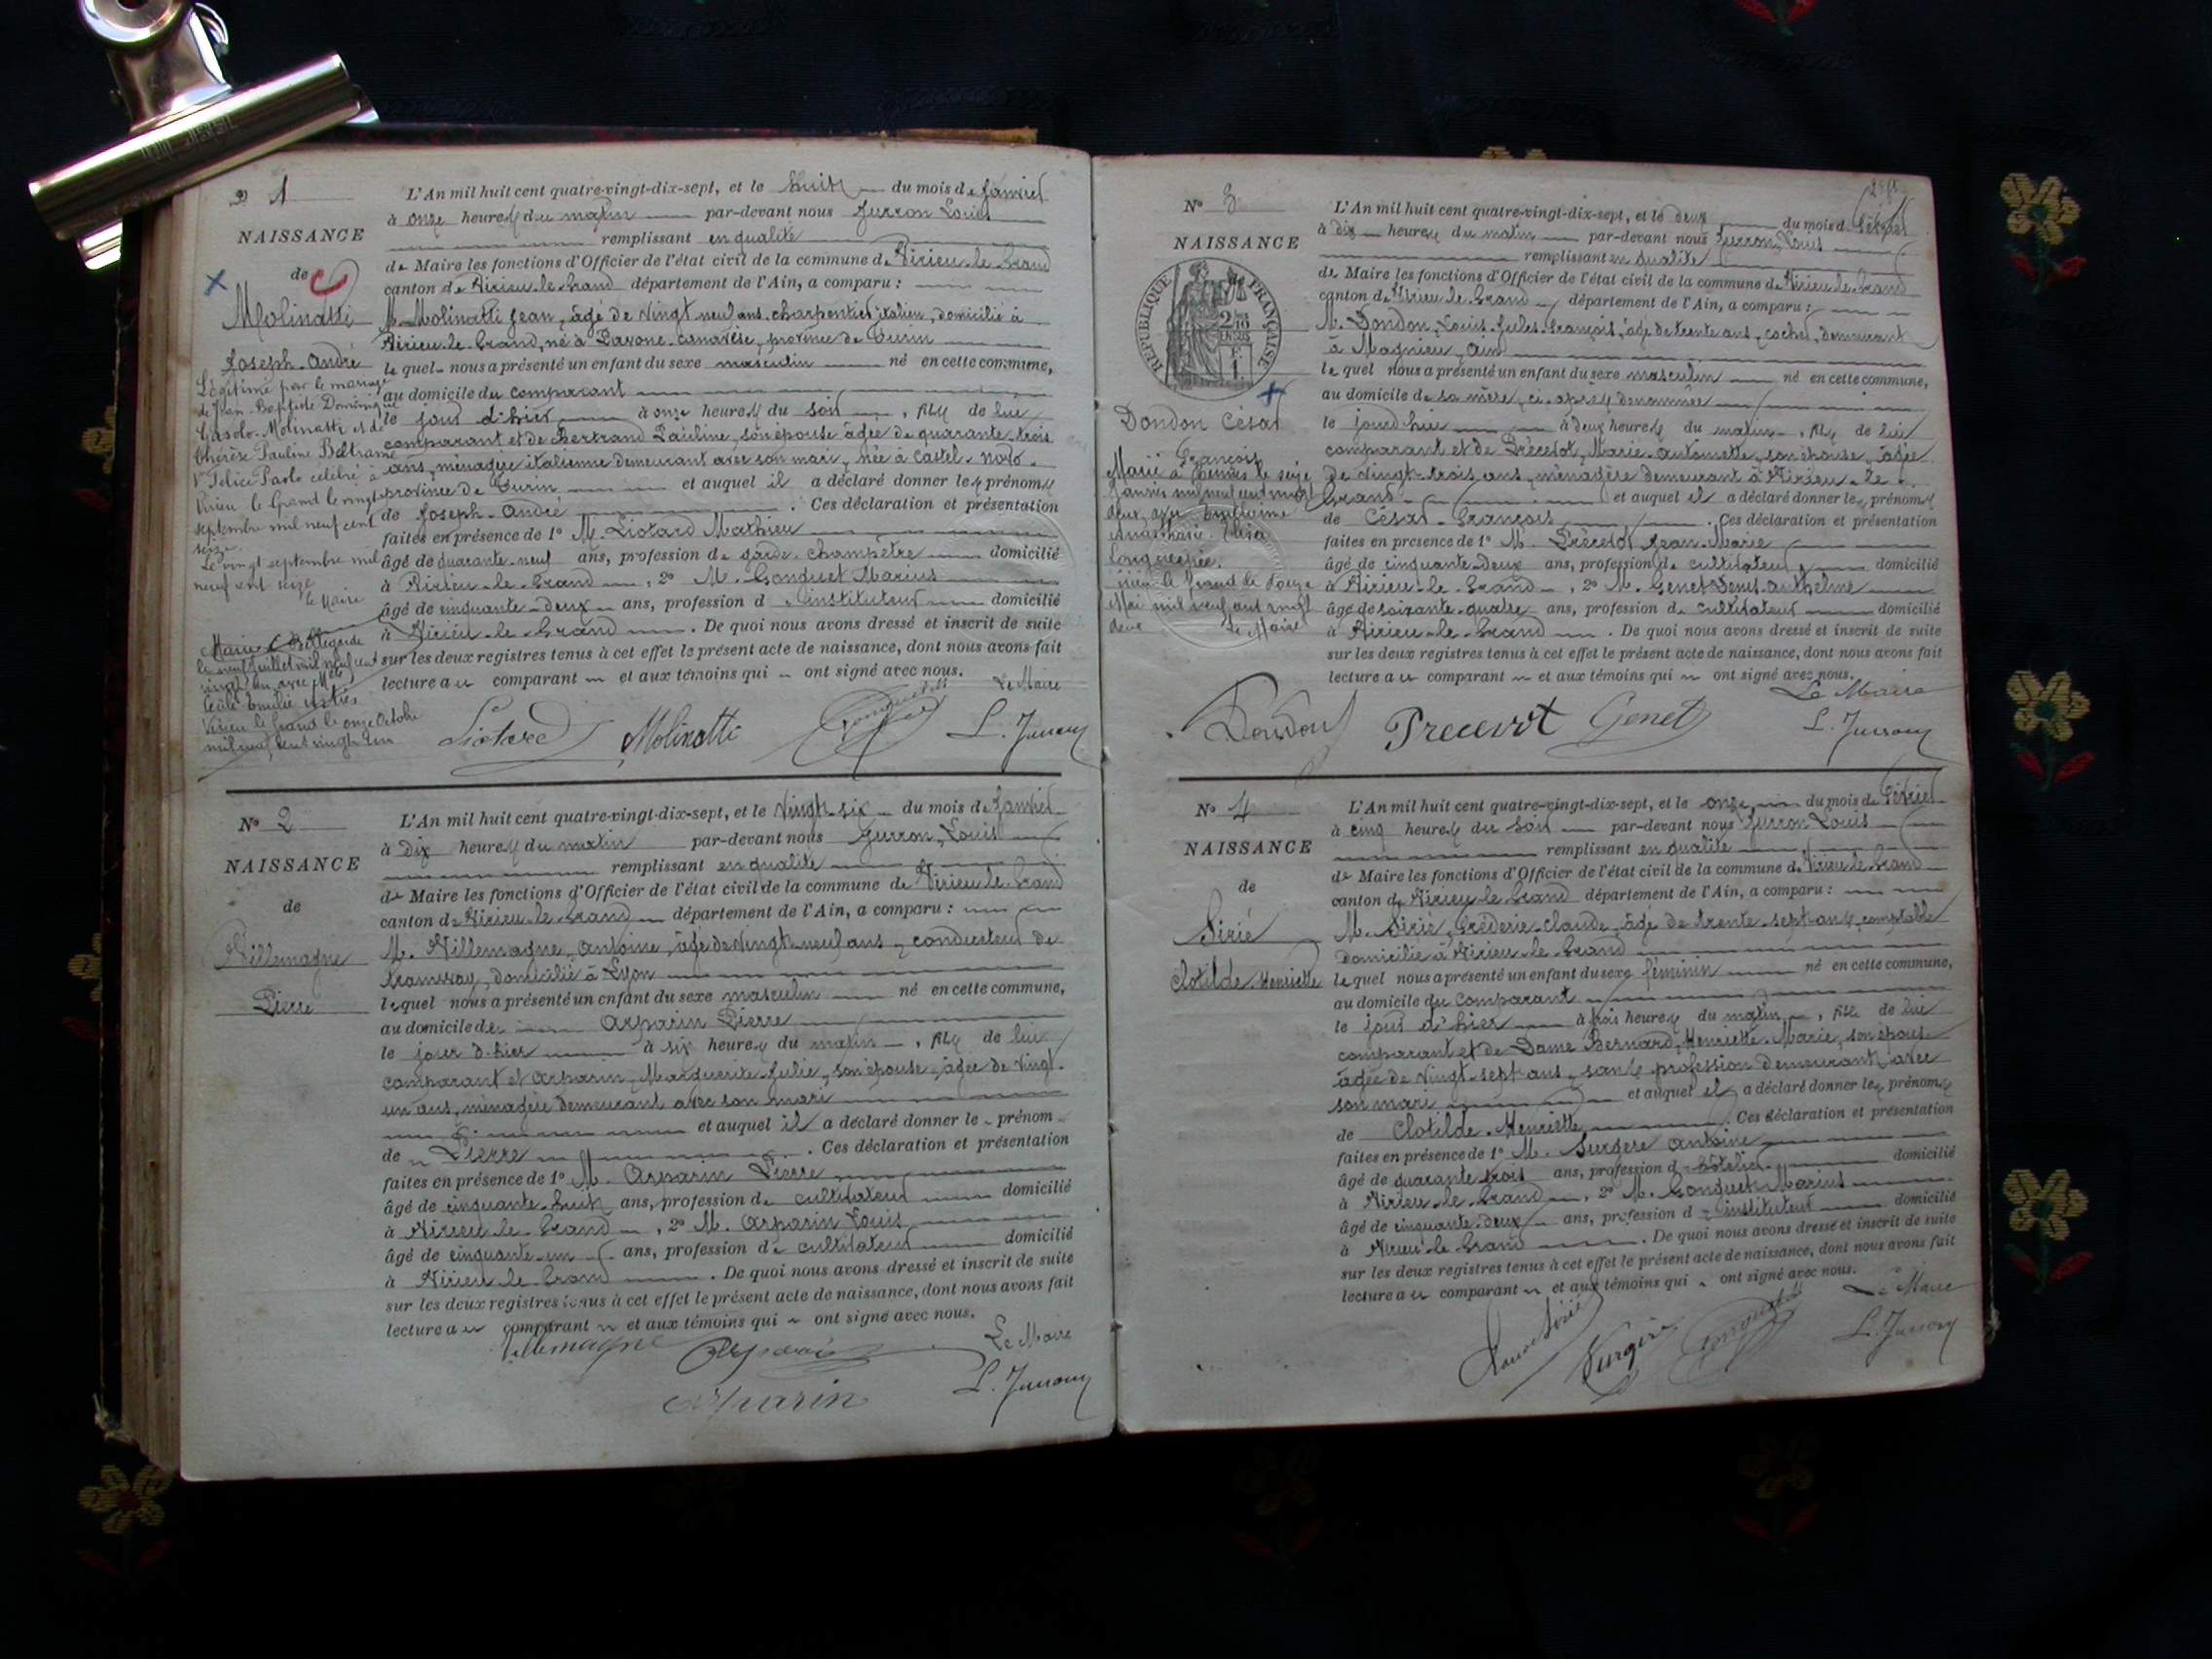 1
NAISSANCE
de
Molinatti
Joseph-André
Légitimé par le mariage
de Jean-Baptiste Dominique
Gasolo-Molinatti et de
Thérèse Pauline Beltrame
Vve Felice Paolo célébré à
Virieu le Grand le vingt
septembre mil neuf cent
seize.
Le vingt septembre mil
neuf cent seize
le Maire
Marié à Bellegarde
le neuf juillet mil neuf cent
vingt un avec Melle
Emilie
Virieu le Grand le onze Octobre
mil neuf cent vingt un
L'An mil huit cent quatre-vingt-dix-sept, et le huit du mois de Janvier
à onze heures du matin par-devant nous Jurron Louis
remplissant en qualité
de Maire les fonctions d'Officier de l'état civil de la commune de Virieu-le-Grand
canton de Virieu-le-Grand département de l'Ain, a comparu :
M. Molinatti Jean, âgé de vingt neuf ans, charpentier italien, domicilié à
Virieu-le-Grand, né à Pavone-canavèse, province de Turin
le quel nous a présenté un enfant du sexe masculin né en cette commune,
au domicile du comparant
le jour d'hier à onze heures du soir, fils de lui
comparant et de Bertrand Pauline, son épouse âgée de quarante-trois
ans, ménagère italienne demeurant avec son mari, née à Castel-novo.
province de Turin et auquel il a déclaré donner les prénoms
de Joseph-André. Ces déclaration et présentation
faites en présence de 1° M. Liotard Mathieu
âgé de quarante-neuf ans, profession de garde-champêtre domicilié
à Virieu-le-Grand, 2° M. Gonguet Marius
âgé de cinquante-deux ans, profession d'instituteur domicilié
à Virieu-le-Grand. De quoi nous avons dressé et inscrit de suite
sur les deux registres tenus à cet effet le présent acte de naissance, dont nous avons fait
lecture au comparant et aux témoins qui ont signé avec nous.
Le Maire
Liotard Molinatti L. Jurron
N° 2
NAISSANCE
de
Villemagne
Pierre
L'An mil huit cent quatre-vingt-dix-sept, et le vingt-six du mois de Janvier
à dix heures du matin par-devant nous Jurron Louis
remplissant en qualité
de Maire les fonctions d'Officier de l'état civil de la commune de Virieu-le-Grand
canton de Virieu-le-Grand département de l'Ain, a comparu :
M. Villemagne, Antoine, âgé de vingt-neuf ans, conducteur de
tramway, domicilié à Lyon
lequel nous a présenté un enfant du sexe masculin né en cette commune,
au domicile de Arparin Pierre
le jour d'hier à six heures du matin, fils de lui
comparant et Arparin, Marguerite-Julie, son épouse, âgée de vingt-
un ans, ménagère demeurant avec son mari
et auquel il a déclaré donner le prénom
de Pierre. Ces déclaration et présentation
faites en présence de 1° M. Arparin Pierre
âgé de cinquante-huit ans, profession de cultivateur domicilié
à Virieu-le-Grand, 2° M. Arparin Louis
âgé de cinquante-un ans, profession de cultivateur domicilié
à Virieu-le-Grand. De quoi nous avons dressé et inscrit de suite
sur les deux registres tenus à cet effet le présent acte de naissance, dont nous avons fait
lecture au comparant et aux témoins qui ont signé avec nous.
Villemagne Arparin Le Maire
Arparin L. Jurron
N° 3
NAISSANCE
REPUBLIQUE FRANÇAISE
Dondon César
François
Marié à Rennes le seize
Janvier mil neuf cent vingt
deux avec Guillemine
Anastasie Elisa
Virieu le Grand le douze
Mai mil neuf cent vingt
deux Le Maire
L'An mil huit cent quatre-vingt-dix-sept, et le deux du mois de Février
à dix heures du matin par-devant nous Jurron Louis
remplissant en qualité
de Maire les fonctions d'Officier de l'état civil de la commune de Virieu-le-Grand
canton de Virieu-le-Grand département de l'Ain, a comparu :
M. Dondon, Louis-Jules-François, âgé de trente ans, cocher, demeurant
à Magnieu, Ain
le quel nous a présenté un enfant du sexe masculin né en cette commune,
au domicile de sa mère, ci-après dénommée
le jourd'hui à deux heures du matin, fils de lui
comparant et de Précevot, Marie-Antoinette, son épouse, âgée
de vingt-trois ans, ménagère demeurant à Virieu-le-
Grand et auquel il a déclaré donner les prénoms
de César-François. Ces déclaration et présentation
faites en présence de 1° M. Précevot Jean-Marie
âgé de cinquante-deux ans, profession de cultivateur domicilié
à Virieu-le-Grand, 2° M. Genet Denis-Anthelme
âgé de soixante-quatre ans, profession de cultivateur domicilié
à Virieu-le-Grand. De quoi nous avons dressé et inscrit de suite
sur les deux registres tenus à cet effet le présent acte de naissance, dont nous avons fait
lecture au comparant et aux témoins qui ont signé avec nous.
Le Maire
Dondon Precevot Genet L. Jurron
N° 4
NAISSANCE
de
Sirié
Clotilde Henriette
L'An mil huit cent quatre-vingt-dix-sept, et le onze du mois de Février
à cinq heures du soir par-devant nous Jurron Louis
remplissant en qualité
de Maire les fonctions d'Officier de l'état civil de la commune de Virieu-le-Grand
canton de Virieu-le-Grand département de l'Ain, a comparu :
M. Sirié, Fréderic-Claude, âgé de trente-sept ans, comptable
domicilié à Virieu-le-Grand
le quel nous a présenté un enfant du sexe féminin né en cette commune,
au domicile du comparant
le jour d'hier à trois heures du matin, fille de lui
comparant et de Dame Bernard, Henriette-Marie, son épouse
âgée de vingt-sept ans, sans profession demeurant avec
son mari et auquel il a déclaré donner les prénoms
de Clotilde-Henriette. Ces déclaration et présentation
faites en présence de 1° M. Surgère Antoine
âgé de quarante trois ans, profession d'hôtelier domicilié
à Virieu-le-Grand, 2° M. Gonguet Marius
âgé de cinquante-deux ans, profession d'instituteur domicilié
à Virieu-le-Grand. De quoi nous avons dressé et inscrit de suite
sur les deux registres tenus à cet effet le présent acte de naissance, dont nous avons fait
lecture au comparant et aux témoins qui ont signé avec nous.
Le Maire
Surgère L. Jurron